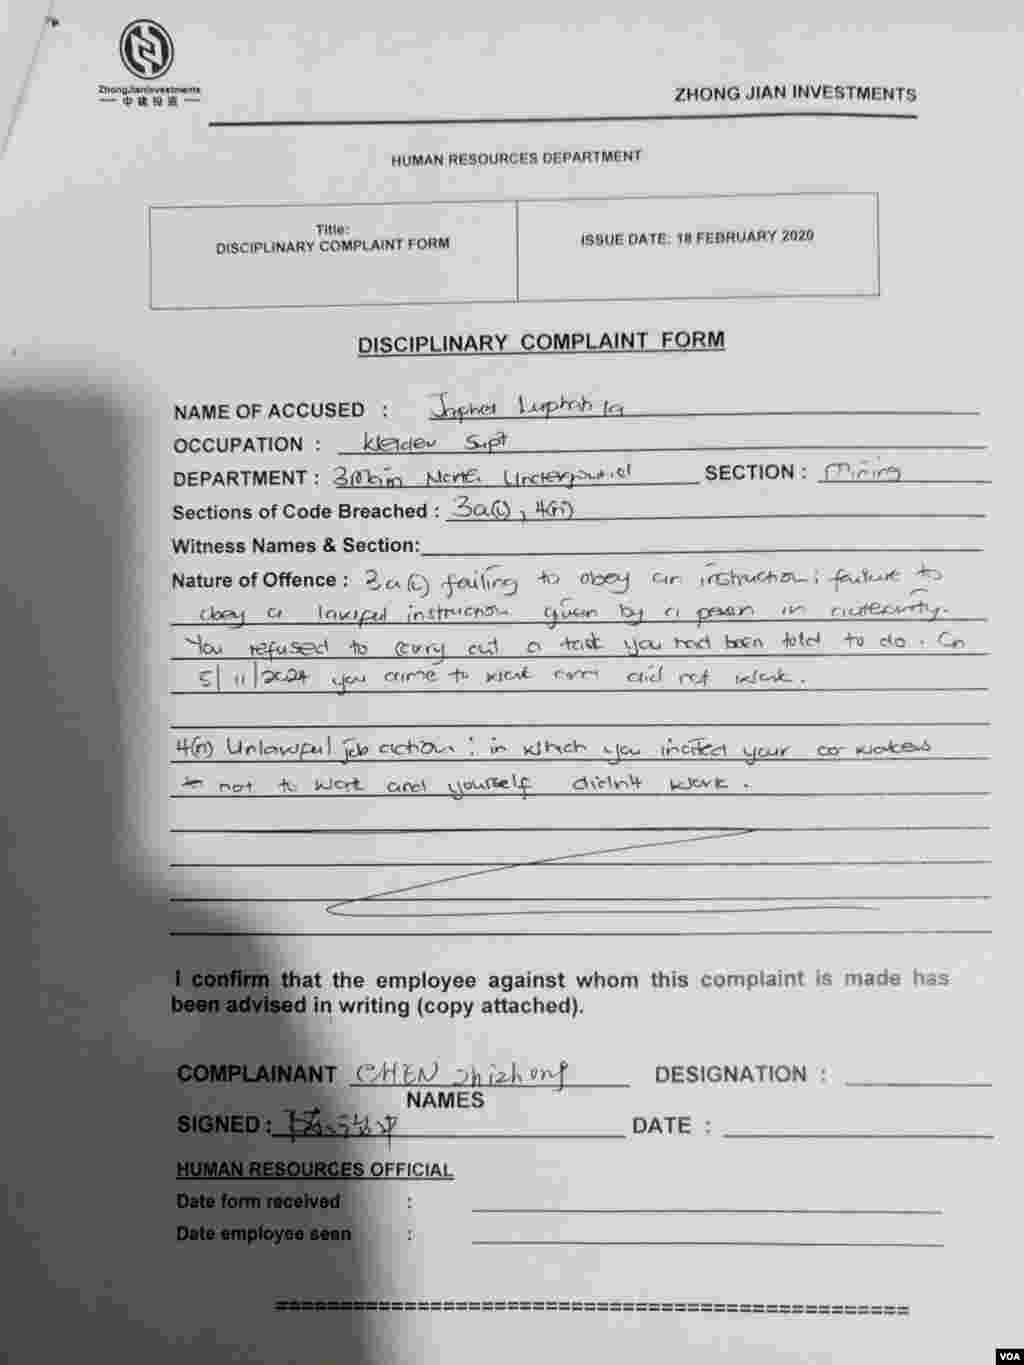 ZhongJianInvestments
中建投资
ZHONG JIAN INVESTMENTS
HUMAN RESOURCES DEPARTMENT
Title:
DISCIPLINARY COMPLAINT FORM
ISSUE DATE: 18 FEBRUARY 2020
DISCIPLINARY COMPLAINT FORM
NAME OF ACCUSED :
OCCUPATION :
DEPARTMENT : 3 Main Underground SECTION : Mining
Sections of Code Breached : 3a(i), 4(n)
Witness Names & Section:
Nature of Offence : 3a(i) failing to obey an instruction; failure to
obey a lawful instruction given by a person in authority.
You refused to carry out a task you had been told to do. On
5/11/2024 you came to work and did not work.
4(n) Unlawful job action : in which you incited your co workers
not to work and yourself didn't work.
I confirm that the employee against whom this complaint is made has
been advised in writing (copy attached).
COMPLAINANT CHEN Shizhong DESIGNATION :
NAMES
SIGNED : DATE :
HUMAN RESOURCES OFFICIAL
Date form received :
Date employee seen :
VOA